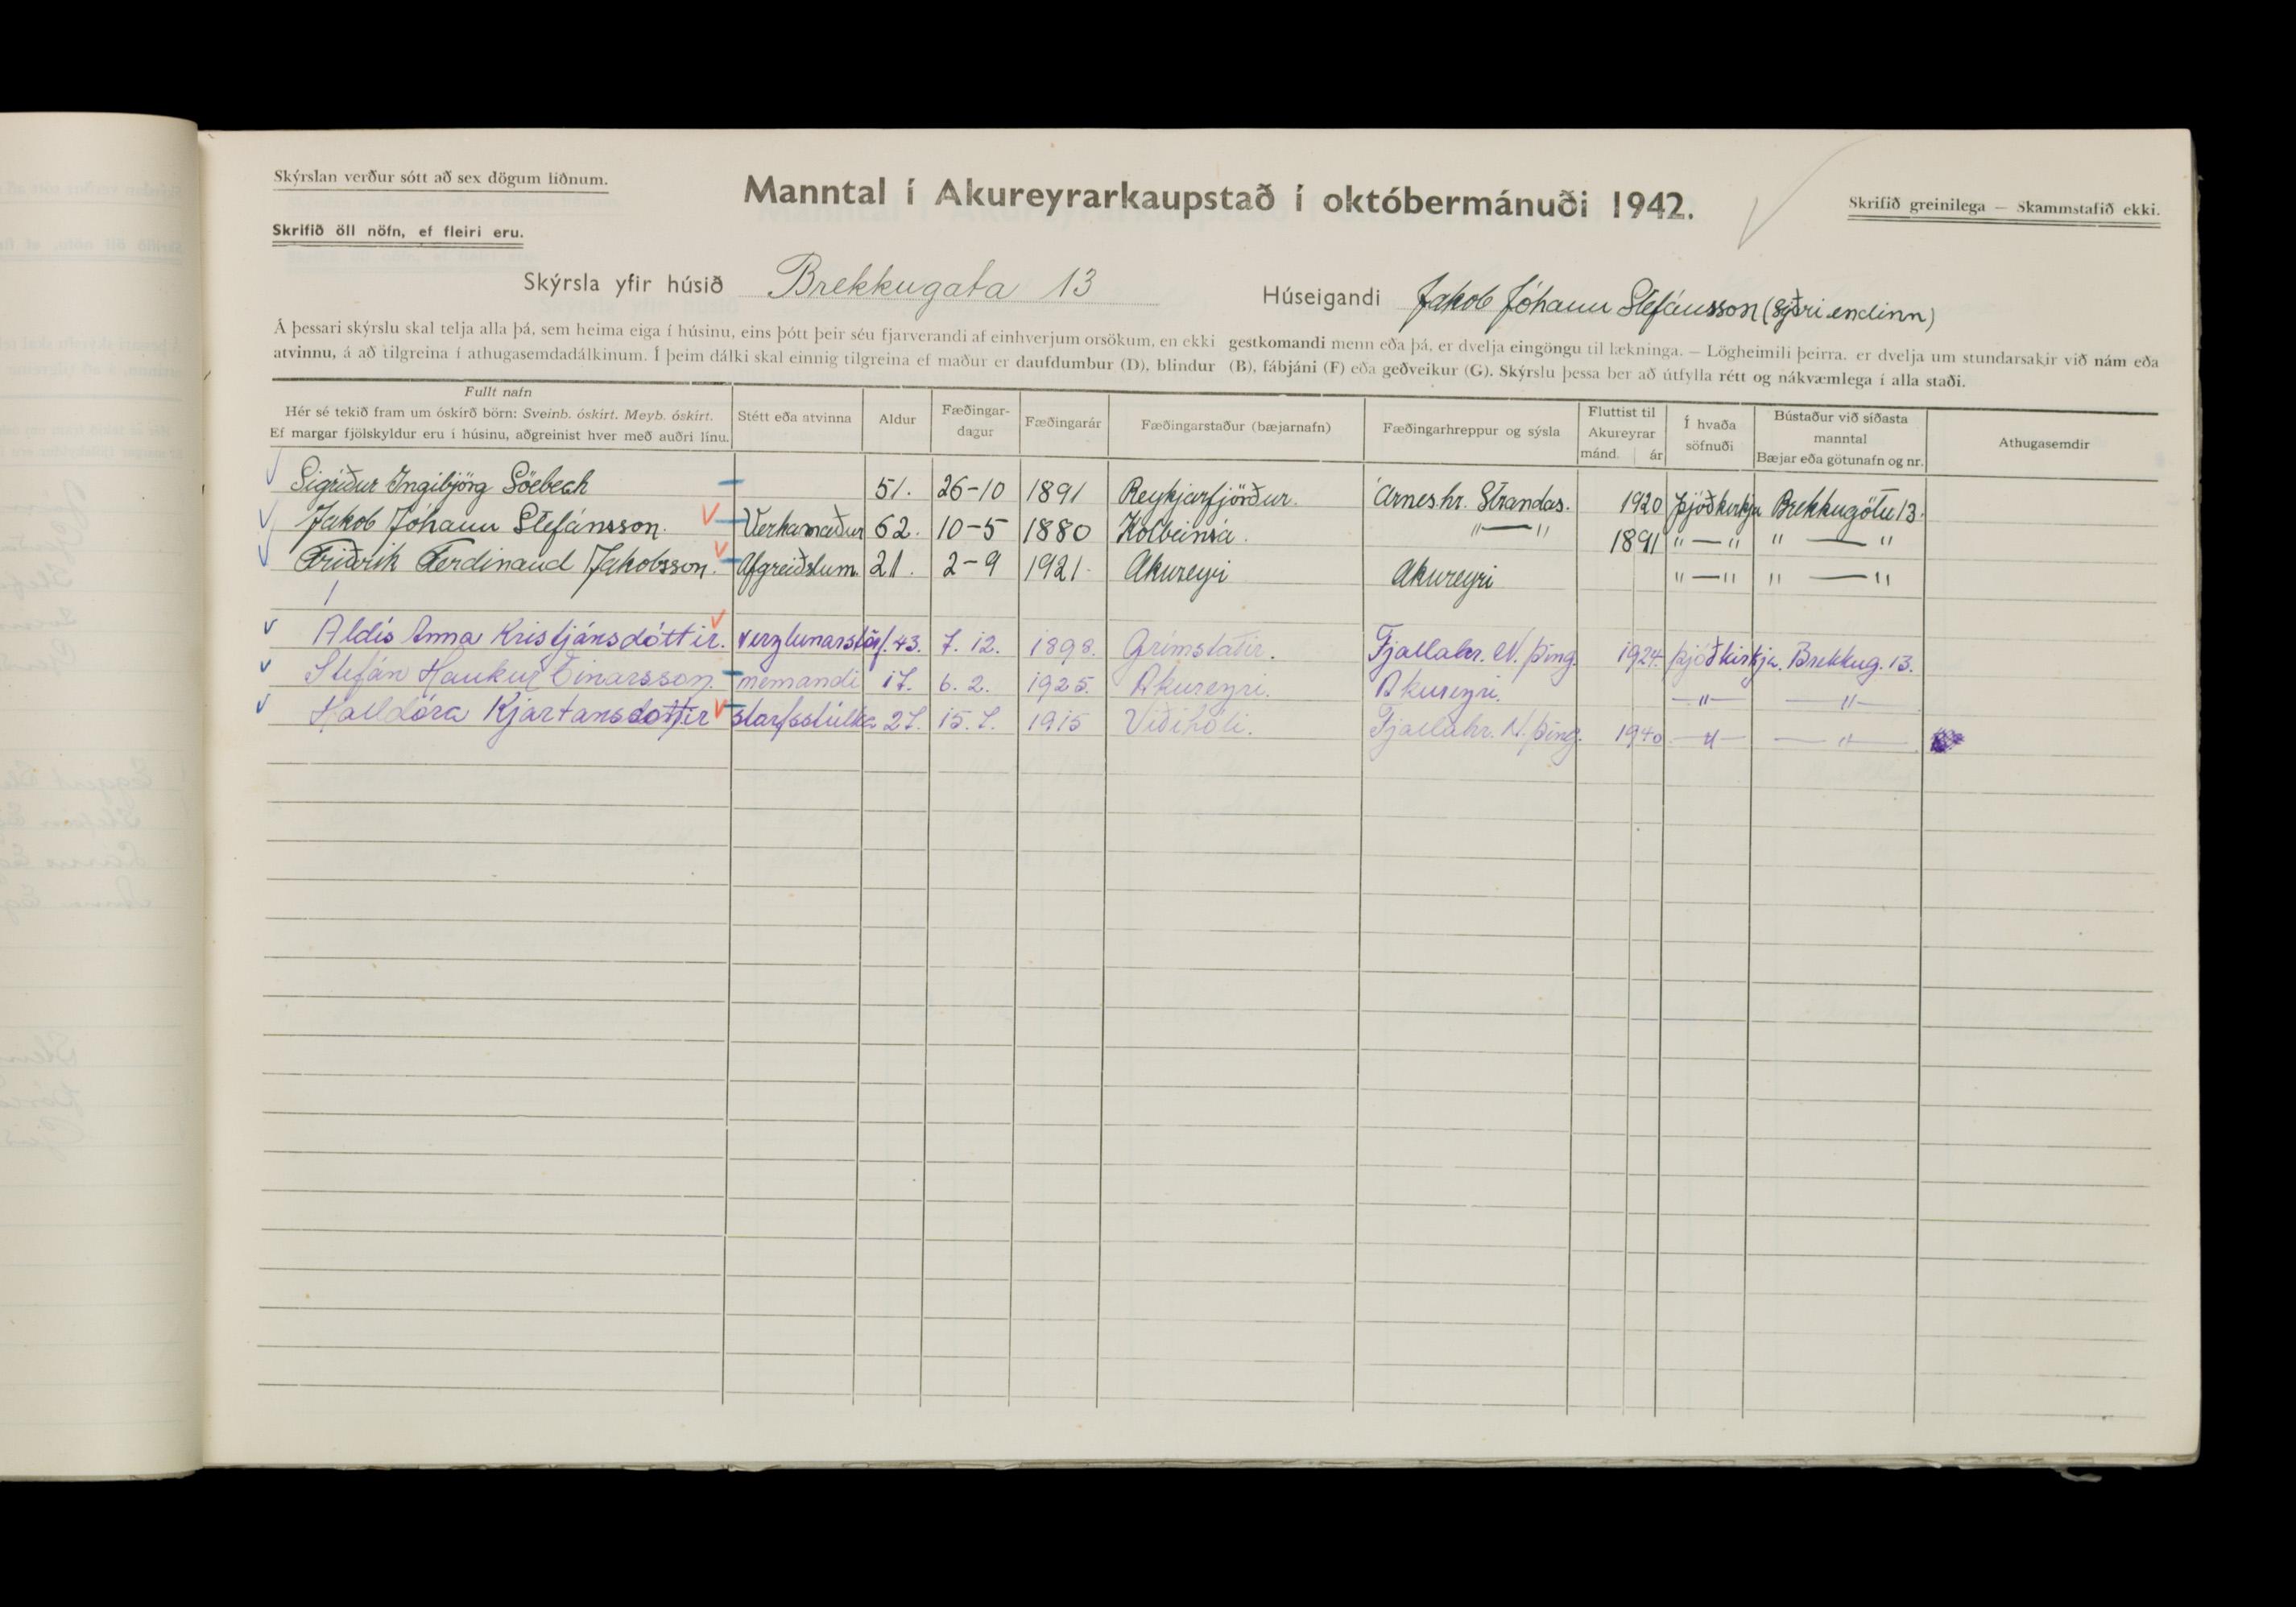 Skýrslan verður sótt að sex dögum liðnum.
Manntal í Akureyrarkaupstað í októbermánuði 1942.
Skrifið greinilega — Skammstafið ekki.
Skrifið öll nöfn, ef fleiri eru.
Skýrsla yfir húsið Brekkugata 13 Húseigandi Jakob Jóhann Stefánsson (syðri endinn)
Á þessari skýrslu skal telja alla þá, sem heima eiga í húsinu, eins þótt þeir séu fjarverandi af einhverjum orsökum, en ekki gestkomandi menn eða þá, er dvelja eingöngu til lækninga. — Lögheimili þeirra, er dvelja um stundarsakir við nám eða
atvinnu, á að tilgreina í athugasemdadálkinum. Í þeim dálki skal einnig tilgreina ef maður er daufdumbur (D), blindur (B), fábjáni (F) eða geðveikur (G). Skýrslu þessa ber að útfylla rétt og nákvæmlega í alla staði.
Fullt nafn
Hér sé tekið fram um óskírð börn: Sveinb. óskírt. Meyb. óskírt.
Ef margar fjölskyldur eru í húsinu, aðgreinist hver með auðri línu.
Stétt eða atvinna
Aldur
Fæðingar-
dagur
Fæðingarár
Fæðingarstaður (bæjarnafn)
Fæðingarhreppur og sýsla
Fluttist til
Akureyrar
mánd. ár
Í hvaða
söfnuði
Bústaður við síðasta
manntal
Bæjar eða götunafn og nr.
Athugasemdir
Sigríður Ingibjörg Söebeck 51. 26-10 1891 Reykjarfjörður. Árneshr. Strandas. 1920 Þjóðkirkja Brekkugötu 13.
Jakob Jóhann Stefánsson. Verkamaður 62. 10-5 1880 Kolbeinsá. "—" 1891 "—" "—"
Friðrik Ferdinand Jakobsson. Afgreiðslum. 21. 2-9 1921. Akureyri Akureyri "—" "—"
Aldís Anna Kristjánsdóttir. verzlunarstörf. 43. 7. 12. 1898. Grímstaðir. Fjallahr. N. Þing. 1924. Þjóðkirkja. Brekkug. 13.
Stefán Haukur Einarsson. nemandi 17. 6. 2. 1925. Akureyri. Akureyri. —"— —"—
Halldóra Kjartansdóttir starfsstúlka 27. 15. 7. 1915 Víðihóli. Fjallahr. N. Þing. 1940 —"— —"—